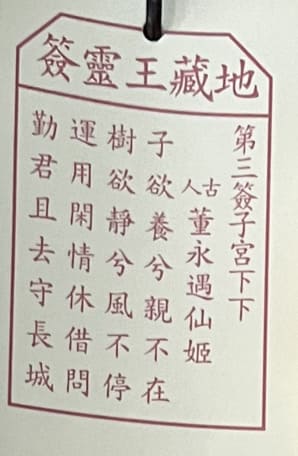 地藏王靈簽
第三簽子宮下下
古人董永遇仙姬
子欲養兮親不在
樹欲靜兮風不停
運用閑情休借問
勤君且去守長城